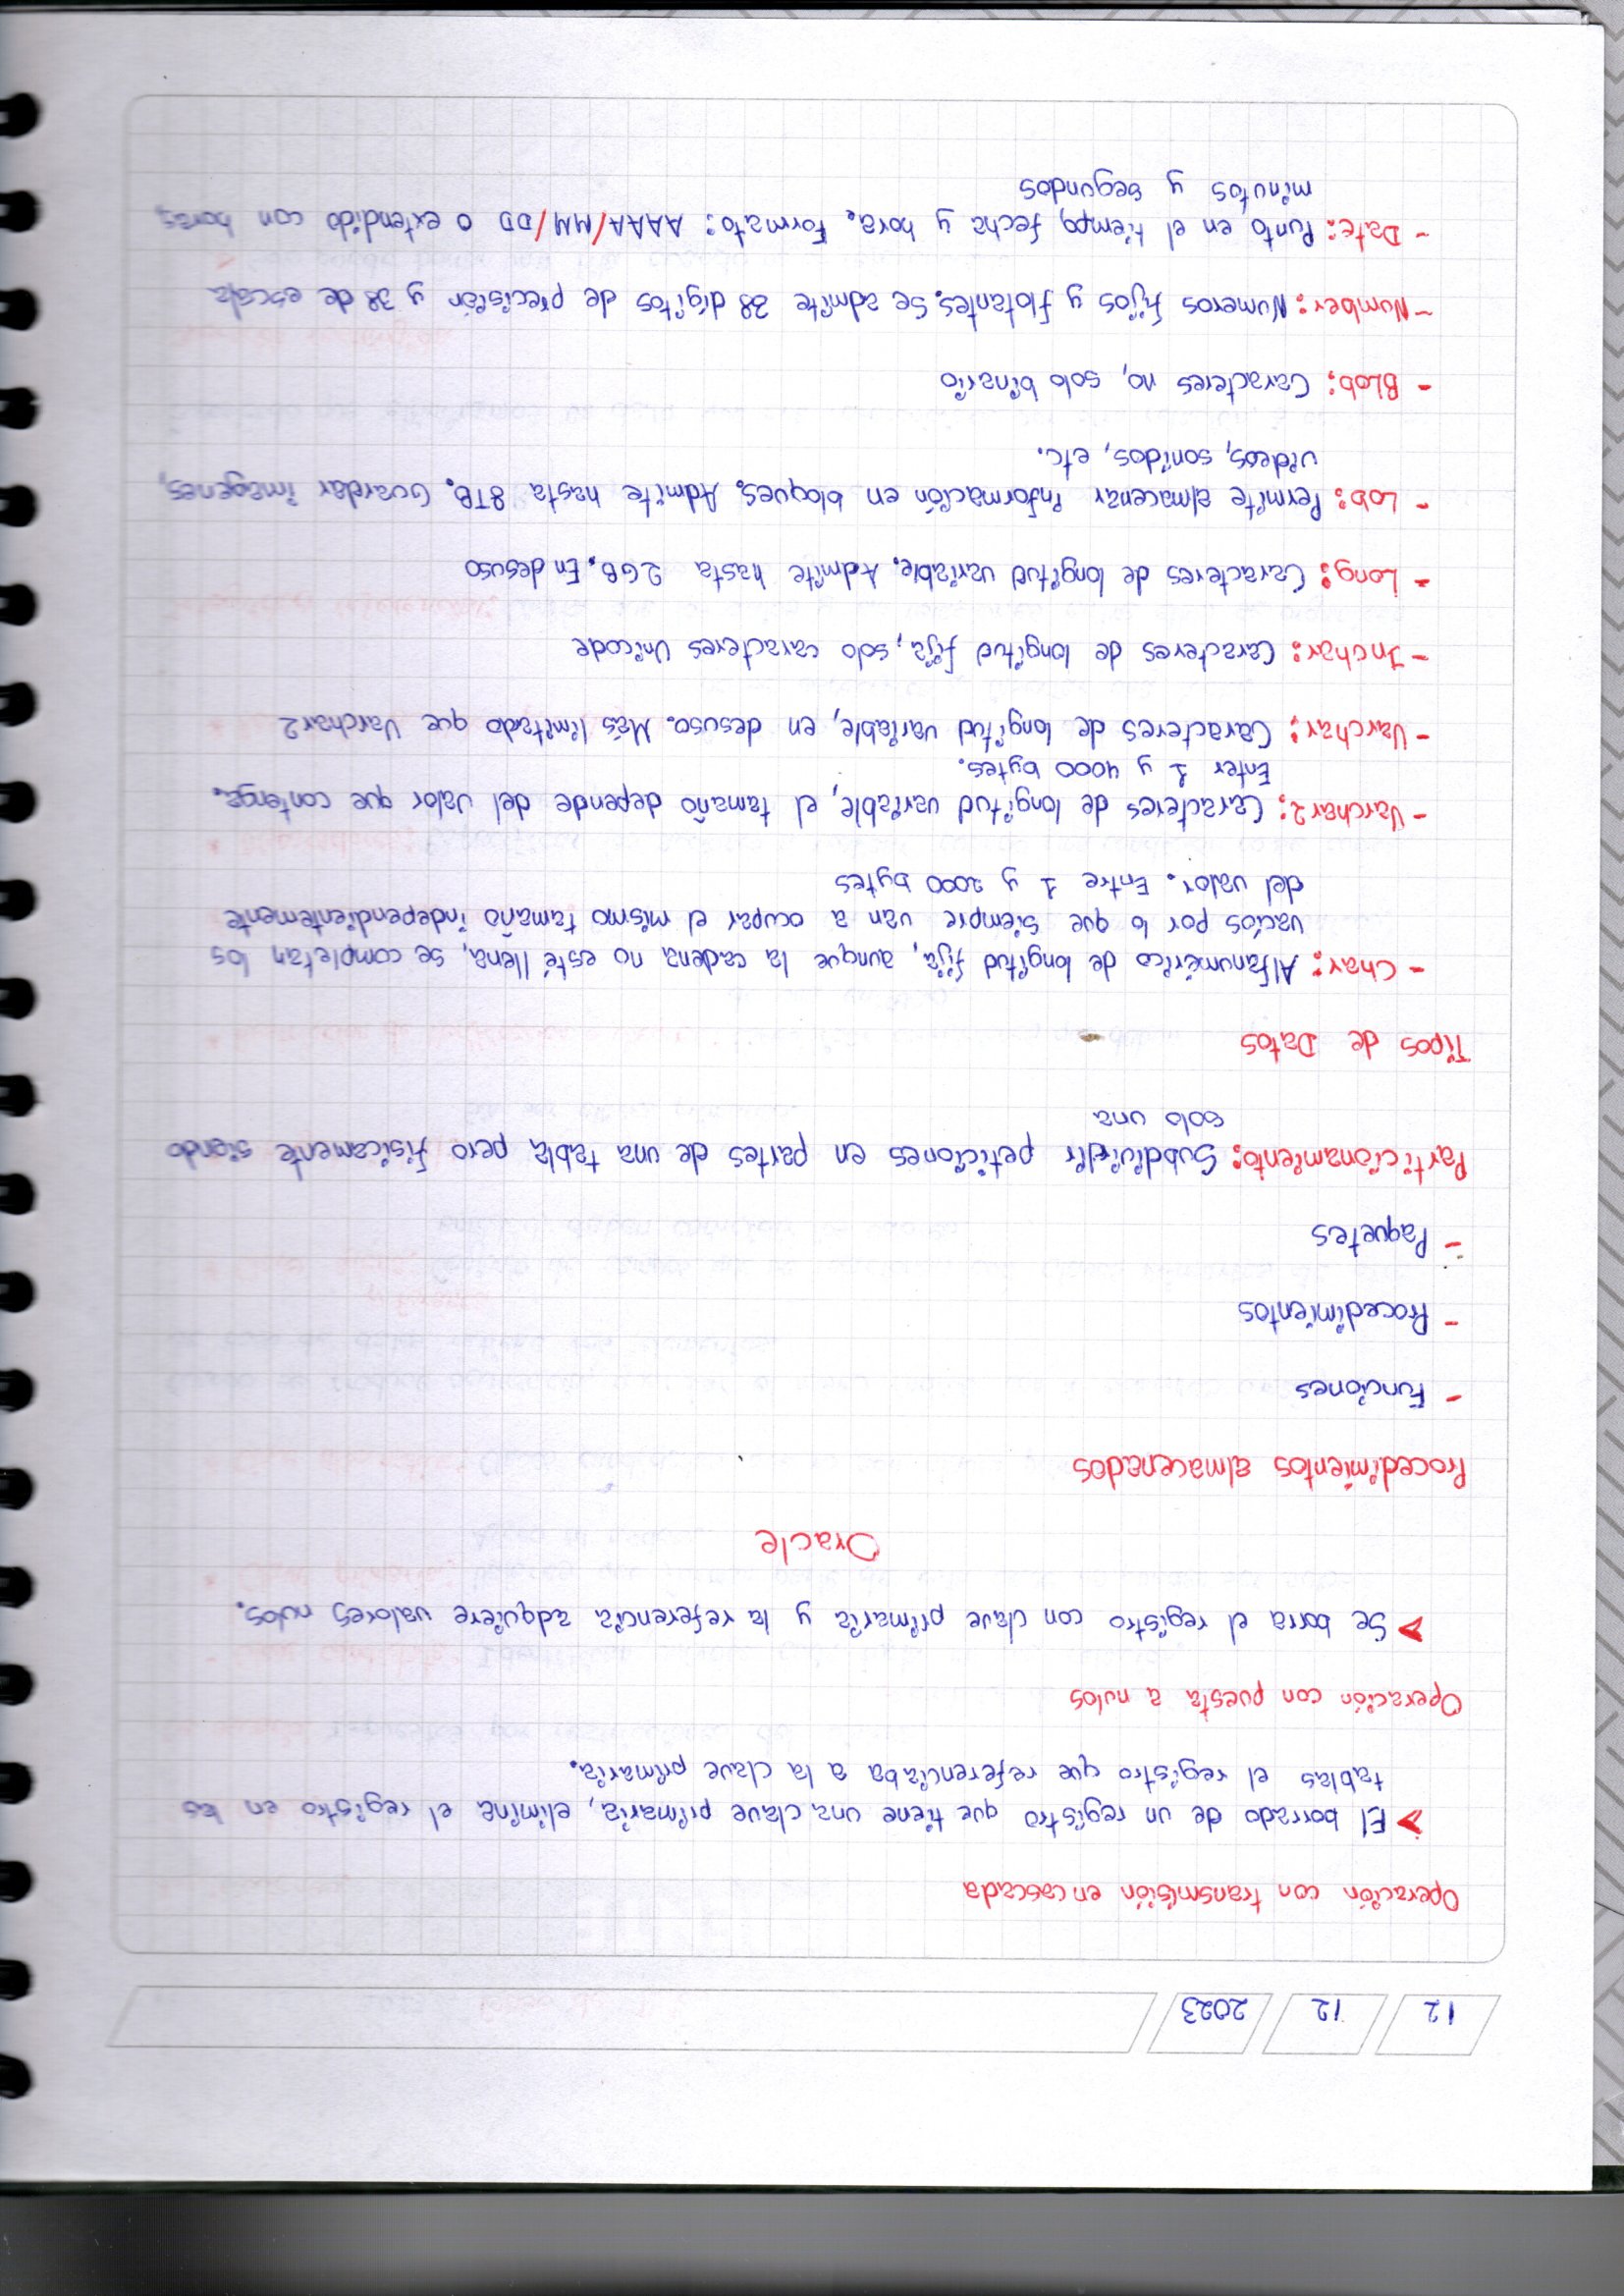 12 12 2023
Operación con transmisión en cascada
➤ El borrado de un registro que tiene una clave primaria, elimina el registro en las
tablas el registro que referenciaba a la clave primaria.
Operación con puesta a nulos
➤ Se borra el registro con clave primaria y la referencia adquiere valores nulos.
Oracle
Procedimientos almacenados
- Funciones
- Procedimientos
- Paquetes
Particionamiento: Subdividir peticiones en partes de una tabla pero físicamente siendo
solo una
Tipos de Datos
- Char: Alfanumérico de longitud fija, aunque la cadena no esté llena, se completan los
vacíos por lo que siempre van a ocupar el mismo tamaño independientemente
del valor. Entre 1 y 2000 bytes
- Varchar2: Caracteres de longitud variable, el tamaño depende del valor que contenga.
Enter 1 y 4000 bytes.
- Varchar: Caracteres de longitud variable, en desuso. Más limitado que Varchar2
- Inchar: Caracteres de longitud fija, solo caracteres Unicode
- Long: Caracteres de longitud variable. Admite hasta 2GB. En desuso
- Lob: Permite almacenar información en bloques. Admite hasta 8TB. Guardar imágenes,
videos, sonidos, etc.
- BLob: Caracteres no, solo binario
- Number: Numeros fijos y flotantes. Se admite 38 digitos de precisión y 38 de escala
- Date: Punto en el tiempo, fecha y hora. Formato: AAAA/MM/DD o extendido con horas,
minutos y segundos